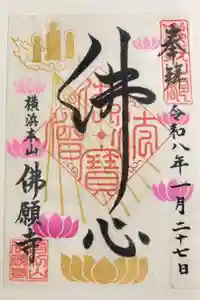 奉拝
令和八年一月二十七日
佛心
横浜本山
佛願寺